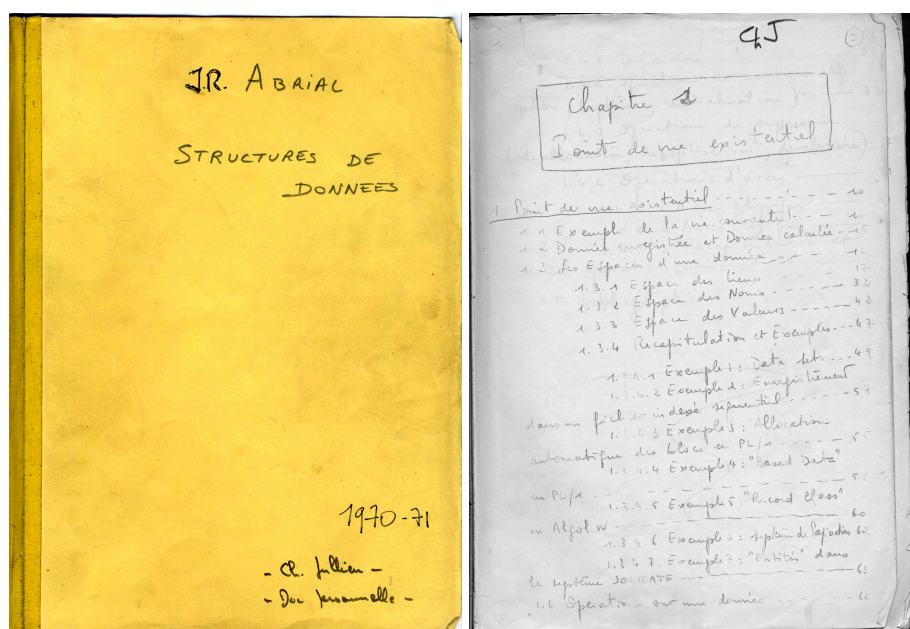 J.R. ABRIAL
STRUCTURES DE
DONNEES
1970-71
- Ch. Jullien -
- Doc personnelle -
Ch J
Chapitre 1
Point de vue existentiel
1 Point de vue existentiel - - - - - - 10
1.1 Exemple de la vie courante - - - 10
1.2 Donnée enregistrée et Donnée calculée - 15
1.3 Les Espaces d'une donnée - - -
1.3.1 Espace des liens
1.3.2 Espace des Noms - - - - 32
1.3.3 Espace des Valeurs - - - - 42
1.3.4 Recapitulation et Exemples - - - 47
1.3.4.1 Exemple 1 : Data sets - - - 49
1.3.4.2 Exemple 2 : Enregistrement
dans un fichier indexé séquentiel - - - - - - 51
1.3.4.3 Exemple 3 : Allocation
automatique des blocs en PL/1 - - - - - 55
1.3.4.4 Exemple 4 : "Based Data"
en PL/1 - - - - - -
1.3.4.5 Exemple 5 : "Record Class"
en Algol W - - - - - - 60
1.3.4.6 Exemple 6 : système de 62
1.3.4.7. Exemple 7 : "Entités" dans
le système SOCRATE - - - - - - 63
1.4 Operations sur une donnée - - - - 66